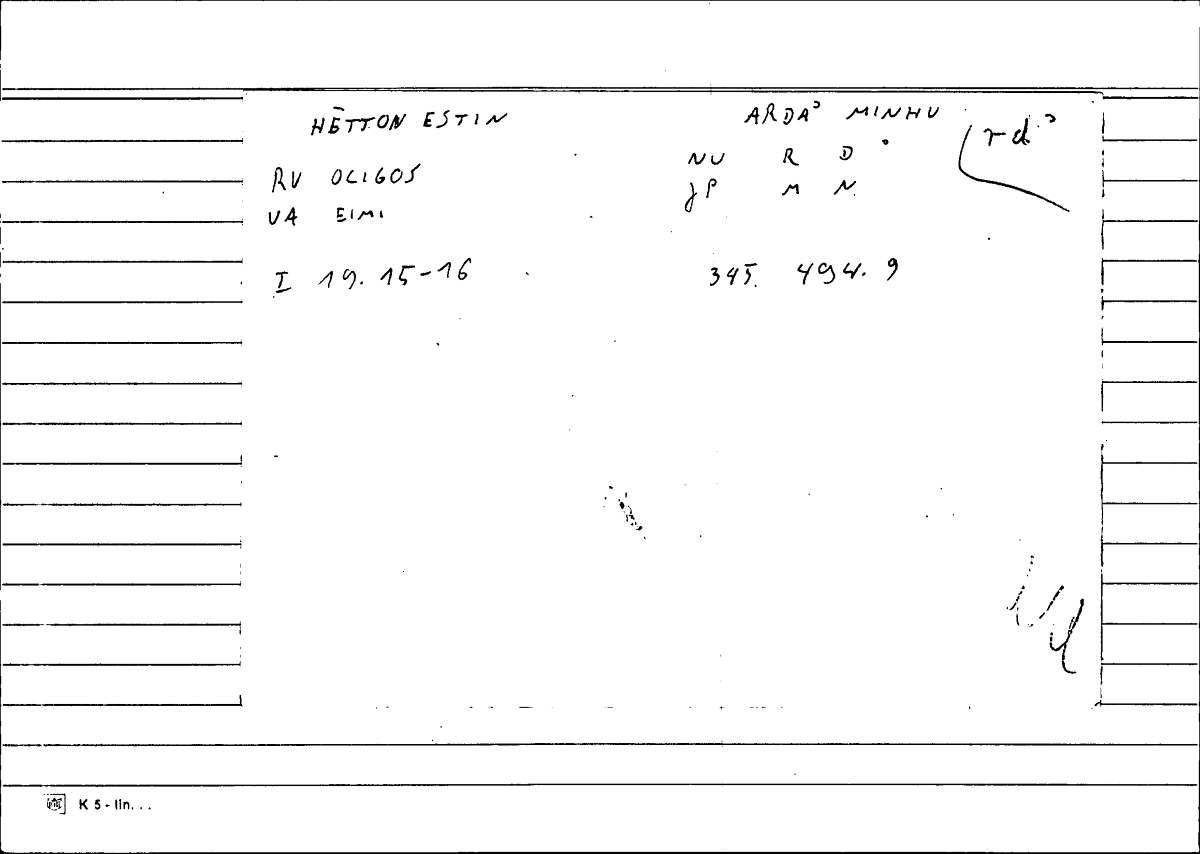 HĒTTON ESTIN
ARDAʾ MINHU
rdʾ
RV OLIGOS
NU R D ʾ
VA EIMI
JP M N
I 19. 15-16
345. 494. 9
K 5 - lin. . .